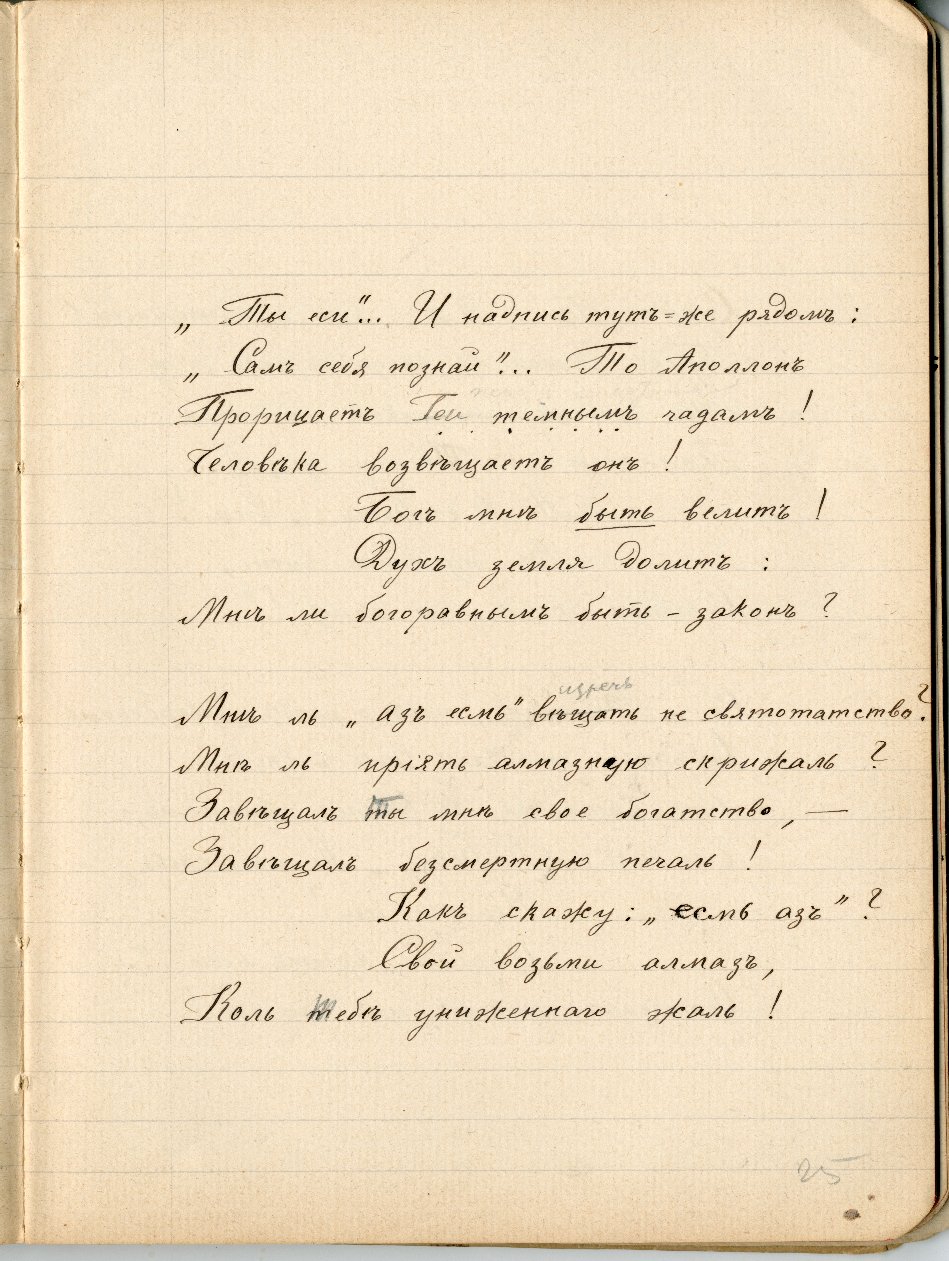 „Ты еси“... И надпись тутъ=же рядомъ:
„Самъ себя познай“... То Аполлонъ
Прорицаетъ Геи темнымъ чадамъ!
Человѣка возвѣщаетъ онъ!
Богъ мнѣ быть велитъ!
Духъ земля долитъ:
Мнѣ ли богоравнымъ быть – законъ?
изречь
Мнѣ ль „азъ есмь“ вѣщать не святотатство?
Мнѣ ль пріять алмазную скрижаль?
Завѣщалъ Ты мнѣ свое богатство, —
Завѣщалъ безсмертную печаль!
Какъ скажу: „есмь азъ“?
Свой возьми алмазъ,
Коль Тебѣ униженнаго жаль!
25